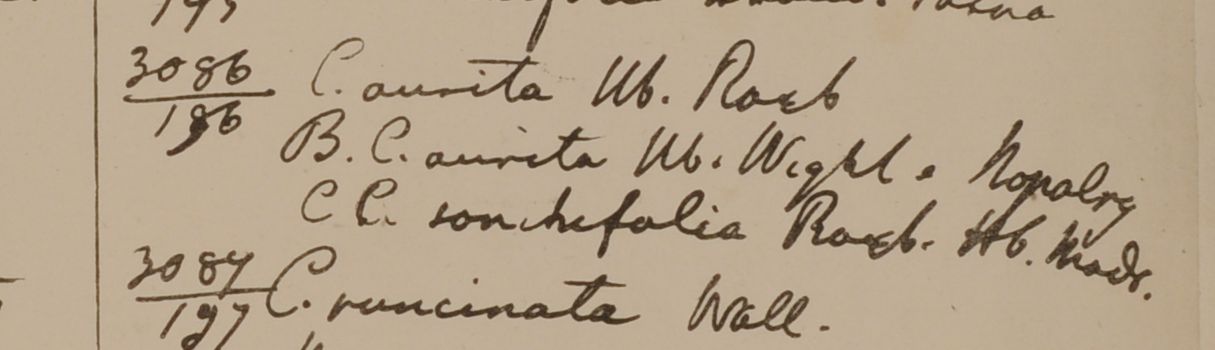 3086 C. aurita Hb. Roxb
196 B. C. aurita Hb. Wight. Nopalry
C C. sonchifolia Roxb. Hb. Madr.
3087 C. runcinata Wall.
197